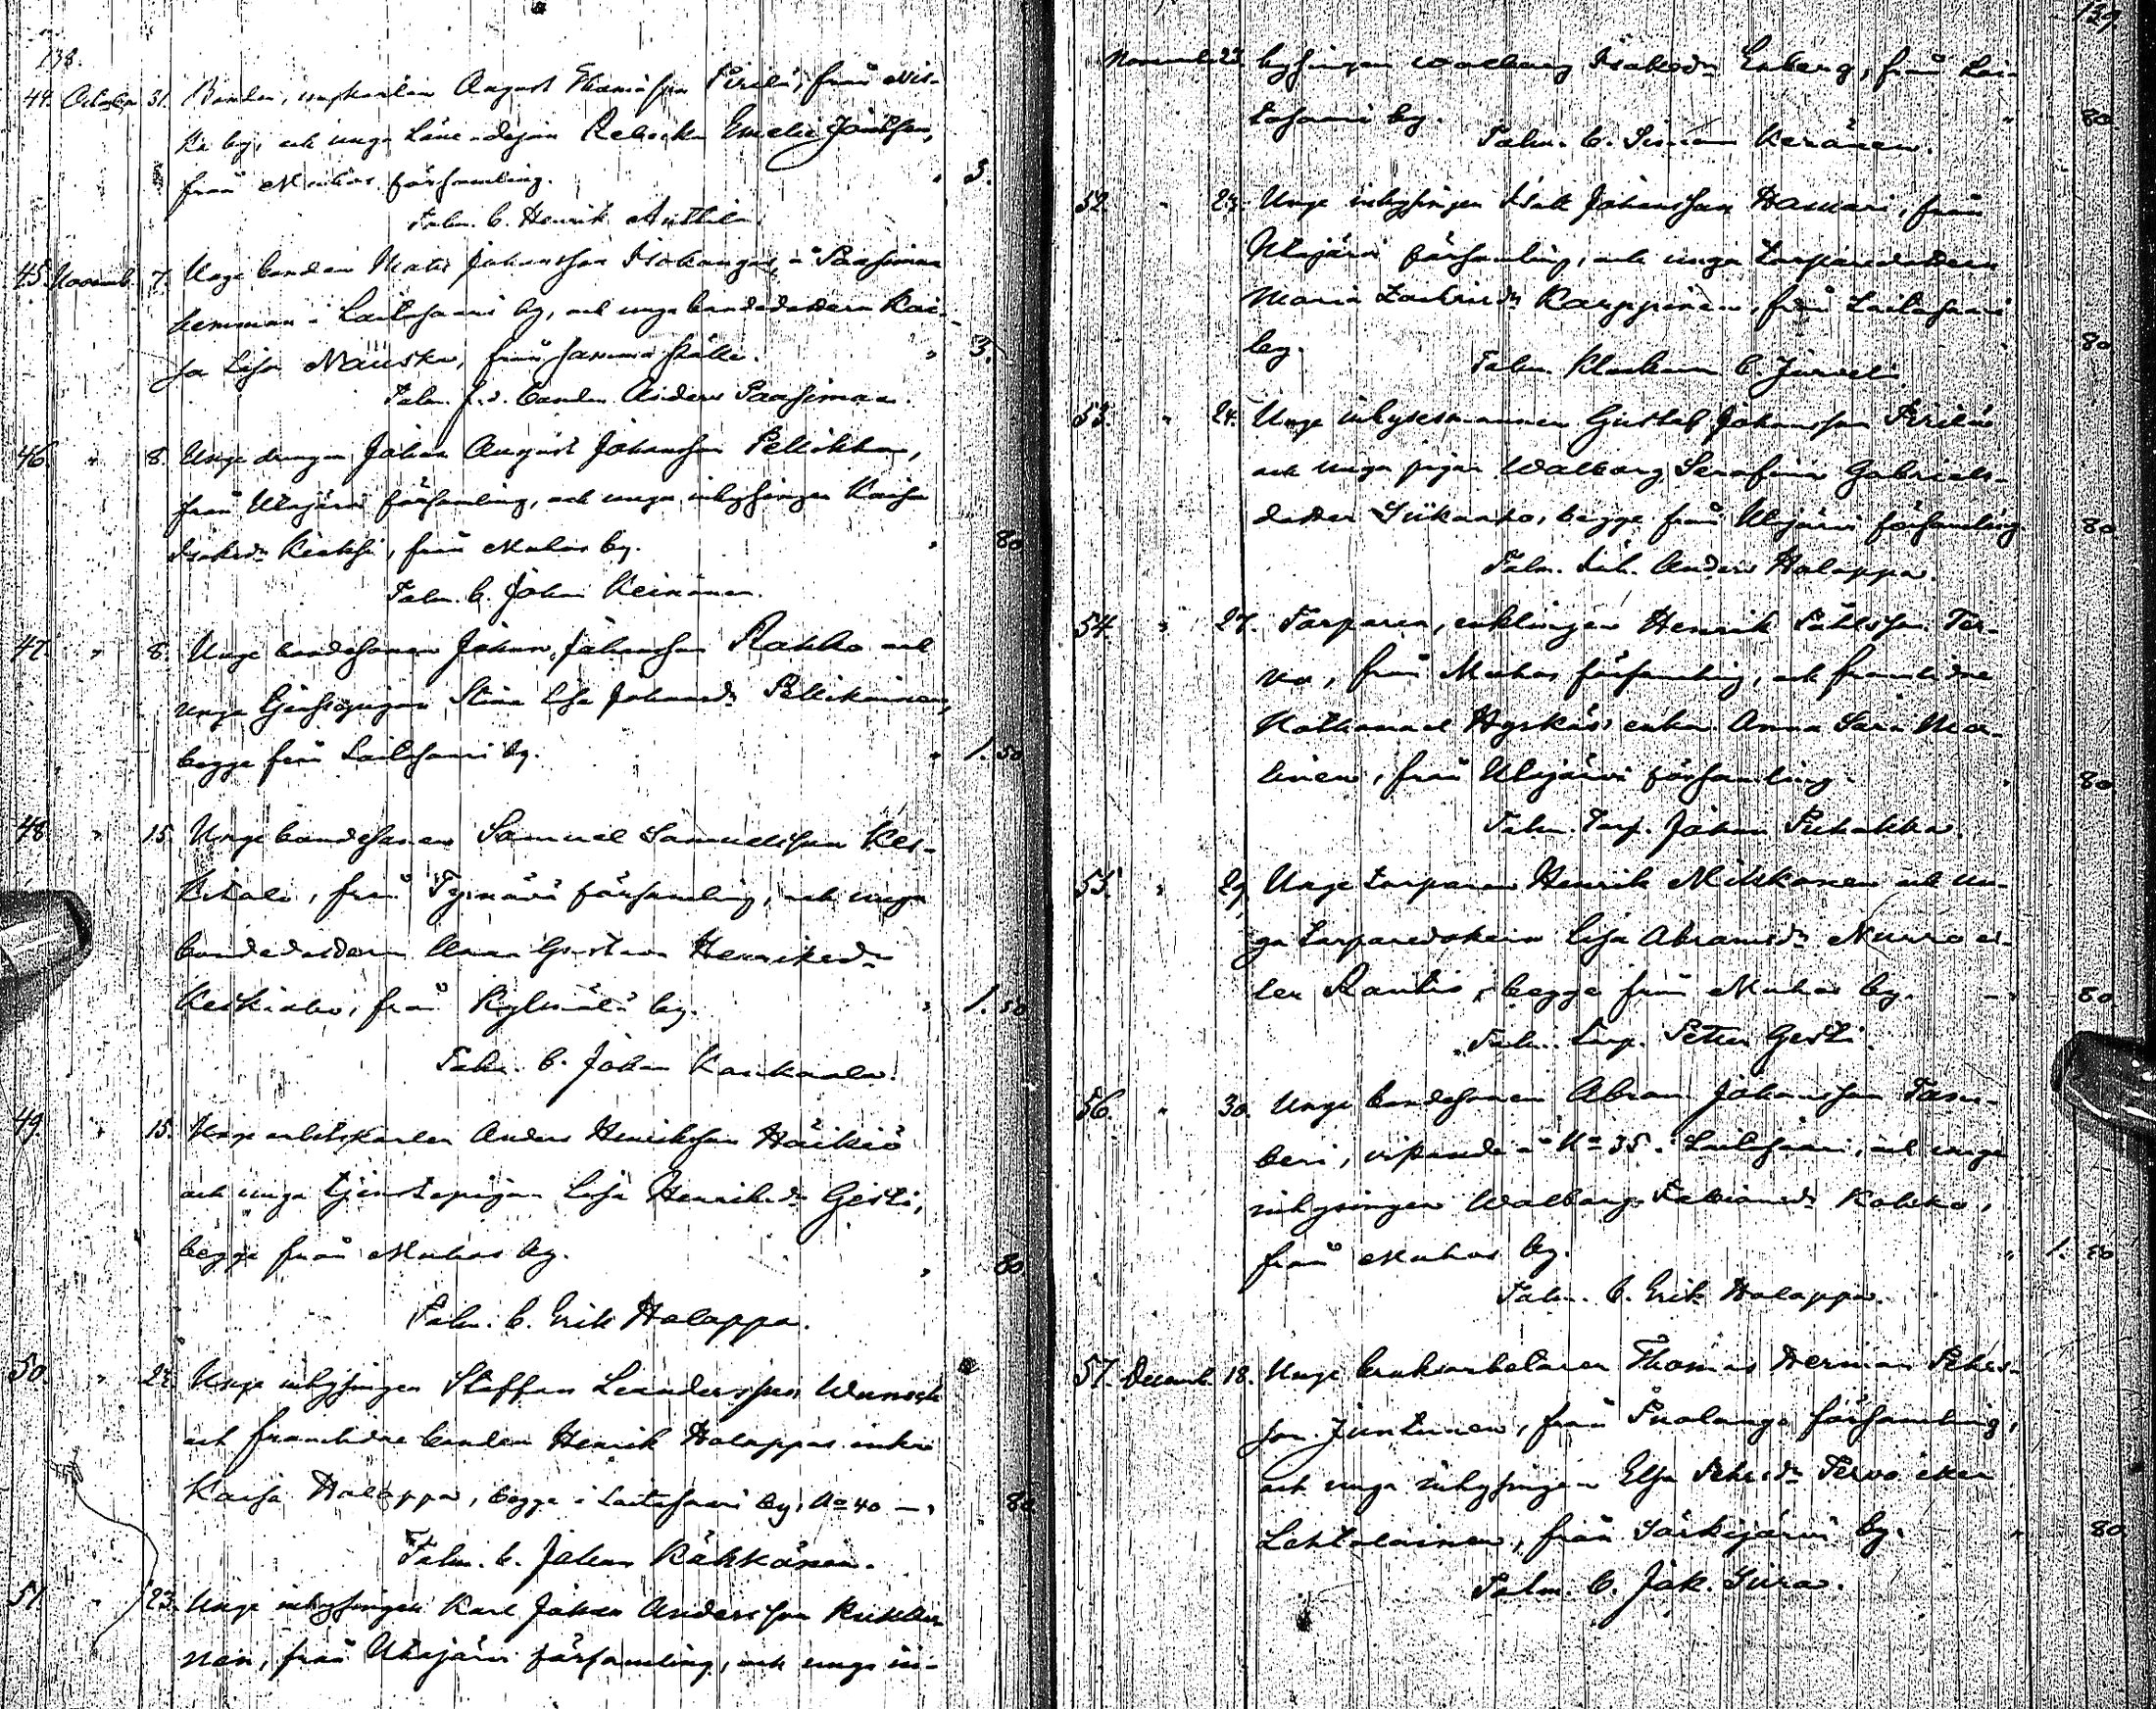 138.
44. October 31. Bonden, ungkarlen August Thomasson Pirilä, från Nis-
ka by, och unga Länedejan Rebecka Emelie Jäntsen,
från Muhos församling. " 3.
Talm. b. Henrik Anttila.
45. Novemb. 7. Unge bonden Mats Johansson Isokangas, å Paasimaa
hemman i Laitasaari by, och unga bondedottern Kai-
sa Lisa Mäuska, från samma ställe. " 3.
Talm. f.d. bonden Anders Paasimaa.
46. " 8. Unge drängen Johan August Johansson Pellikka,
från Utajärvi församling, och unga inhysingen Kaisa
Isaksdr , från Muhos by. " 80
Talm. b. Johan Keinänen.
47. " 8. Unge bondesonen Johan Johansson Rahko och
unga tjenstepigan Stina Lisa Johansdr Pellikainen,
begge från Laitasaari by. " 1. 50
48 " 15. Unge bondesonen Samuel Samuelsson Kes-
kitalo, från Tyrnävä församling, och unga
bondedottern Anna Gustava Henriksdr
Keskiaho, från Kylmälä by. " 1. 50
Talm. b. Johan Kaukaala.
49. " 15. Unge arbetskarlen Anders Henriksson Häikiö
och unga tjenstepigan Lisa Henriksdr Gesti,
begge från Muhos by. " 80
Talm. b. Erik Holappa.
50. " 22. Unge inhysingen Staffan Leandersson
och framlidne bonden Henrik Holappas enka
Kaisa Holappa, begge i Laitasaari by, No 40 — " 80
Talm. b. Johan Räkkänen.
51 " 23. Unge inhysingen Karl Johan Andersson
nen, från Utajärvi församling, och unga in-
129
Novemb. 23 hysingen Walborg Isaksdr Enberg, från Lai-
tasaari by. " 80
Talm. b. Simon Keränen.
52. " 23. Unge inhysingen Isak Johansson Hamari, från
Utajärvi församling, och unga torparedottern
Maria Zachrisdr Karppinen, från Laitasaari
by. " 80
Talm. Klockaren C. Jurvelin
53. " 24. Unge inhysesmannen Gustaf Johansson Pirilä
och unga pigan Walborg Serafina Gabriels-
dotter Siikaaho, begge från Utajärvi församling 80
Talm. Inh. Anders Holappa.
54. " 27. Torparen, enklingen Henrik Påhlsson Ter-
vo, från Muhos församling, och framlidne
Nathanael Hyrkäs' enka Anna Sara Ma-
linen, från Utajärvi församling. " 80
Talm. Torp. Johan Pukakka.
55. " 29 Unge torparen Henrik Mikkonen och un-
ga torparedottern Lisa Abramsdr Nurro el-
ler Rautio, begge från Muhos by. — " 80
Talm. Torp. Petter Gesti.
56. " 30. Unge bondesonen Abram Johansson
beri, vistande å No 35 i Laitasaari, och unga
inhysingen Walborg Fabiansdr Kokko,
från Muhos by. " 1. 50
Talm. b. Erik Holappa.
57. Decemb. 18. Unge bruksarbetaren Thomas Herman Peters-
son Juntunen, från Puolango församling,
och unga inhysingen Elsa Petersdr Tervo eller
Lehtolainen, från Särkijärvi by. " 80
Talm. b. Jak. Siira.